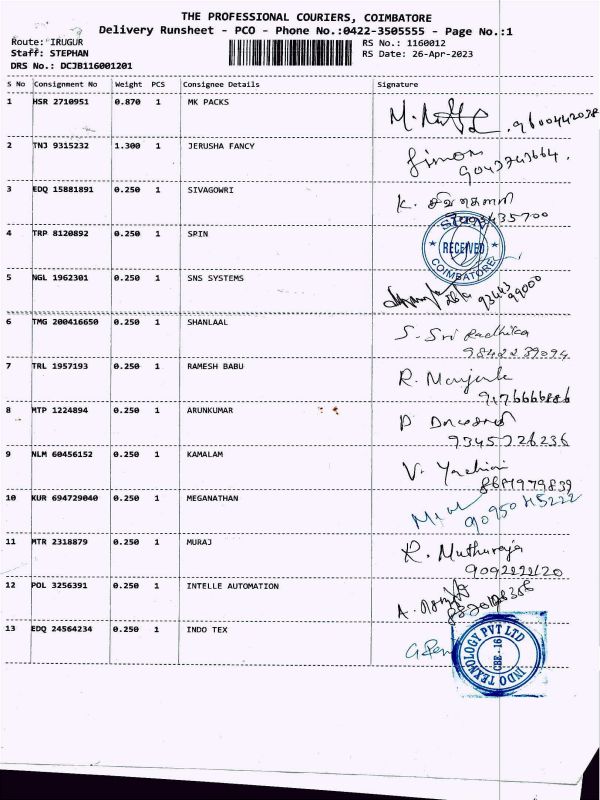 THE PROFESSIONAL COURIERS, COIMBATORE
Delivery Runsheet - PCO - Phone No.:0422-3505555 - Page No.:1
Route: IRUGUR
Staff: STEPHAN
DRS No.: DCJB116001201
RS No.: 1160012
RS Date: 26-Apr-2023
S No Consignment No Weight PCS Consignee Details Signature
1 HSR 2710951 0.870 1 MK PACKS
2 TNJ 9315232 1.300 1 JERUSHA FANCY Simon
3 EDQ 15881891 0.250 1 SIVAGOWRI K.
4 TRP 8120892 0.250 1 SPIN SPIN RECEIVED COIMBATORE
5 NGL 1962301 0.250 1 SNS SYSTEMS 93443 99000
6 TMG 200416650 0.250 1 SHANLAAL S. Sri Radhika
9842239094
7 TRL 1957193 0.250 1 RAMESH BABU R.
8 MTP 1224894 0.250 1 ARUNKUMAR
9345726236
9 NLM 60456152 0.250 1 KAMALAM V.
10 KUR 694729040 0.250 1 MEGANATHAN
11 MTR 2318879 0.250 1 MURAJ R. Muthuraja
12 POL 3256391 0.250 1 INTELLE AUTOMATION A.
13 EDQ 24564234 0.250 1 INDO TEX INDO TEXNOLOGY PVT LTD CBE - 16